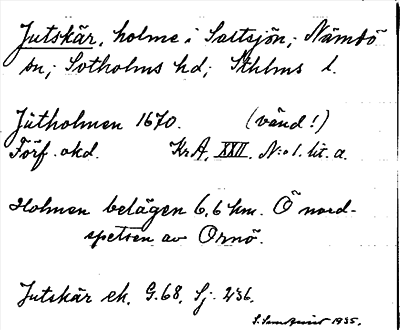 Jutskär, holme i Saltsjön, Nämdö
sn; Sotholms hd; Sthlms l.
Jutholmen 1670. (vänd!)
Förf. okd. Kr.A. XXII. N:o 1. lit. a.
Holmen belägen 6,6 km. Ö nord-
spetsen av Ornö.
Jutskär ek. G.68, Sj. 236.
1935.